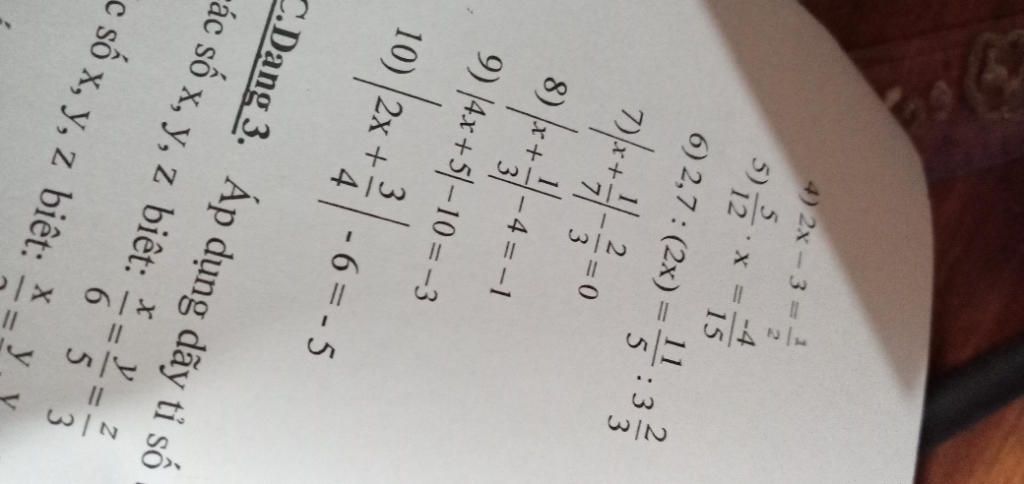 4) 2x − 3 = 1/2
5) 5/12 . x = -4/15
6) 2,7 : (2x) = 11/5 : 3 2/3
7) |x + 1/7| − 2/3 = 0
8) |x + 1/3| − 4 = −1
9) |4x + 5| − 10 = −3
10) |2x + 3/4| - 6 = - 5
C.Dạng 3. Áp dụng dãy tỉ số
ác số x, y, z biết: x/6 = y/5 = z/3
c số x, y, z biết: x = y, y